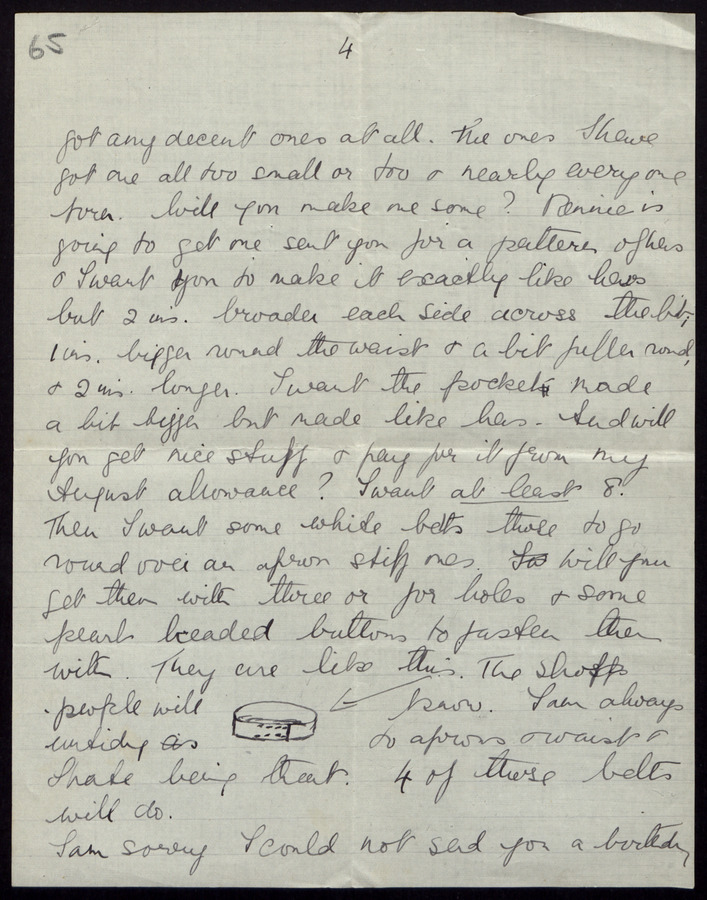 65
4
got any decent ones at all. The ones I have
got are all too small or too & nearly every one
torn. Will you make me some? Bennie is
going to get me sent you for a pattern of hers
& I want you to make it exactly like hers
but 2 ins. broader each side across the bib,
1 in. bigger round the waist & a bit fuller round,
& 2 ins. longer. I want the pockets made
a bit bigger but made like hers. And will
you get nice stuff & pay for it from my
August allowance? I want at least 8.
Then I want some white belts those to go
round over an apron stiff ones. Will you
get them with three or for holes & some
pearl headed buttons to fasten them
with. They are like this. The shop
people will know. I am always
untidy as to aprons & waist &
I hate being that. 4 of these belts
will do.
I am sorry I could not send you a birthday